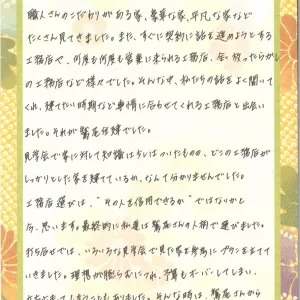 職人さんのこだわりがある家、豪華な家、平凡な家など
たくさん見てきました。また、すぐに契約に話を進めようとする
工務店や、何度も何度も営業に来られる工務店、全く放ったらかし
の工務店など様々でした。そんな中、私たちの話をよく聞いて
くれ、建てたい時期など事情に合わせてくれる工務店と出会い
ました。それが鷲尾住建でした。
見学会で家に対して知識は少しはついたものの、どこの工務店が
しっかりとした家を建てているか、なんて分かりませんでした。
工務店選びは、"その人を信用できるか"ではないかと
今、思います。最終的に私達は鷲尾さんの人柄で選びました。
打ち合せでは、いろいろな見学会で見た家を参考にプランを立てて
いきました。理想が膨らむにつれ、予算もオーバーしてしまい、
こともありました。そんな時は、鷲尾さんから